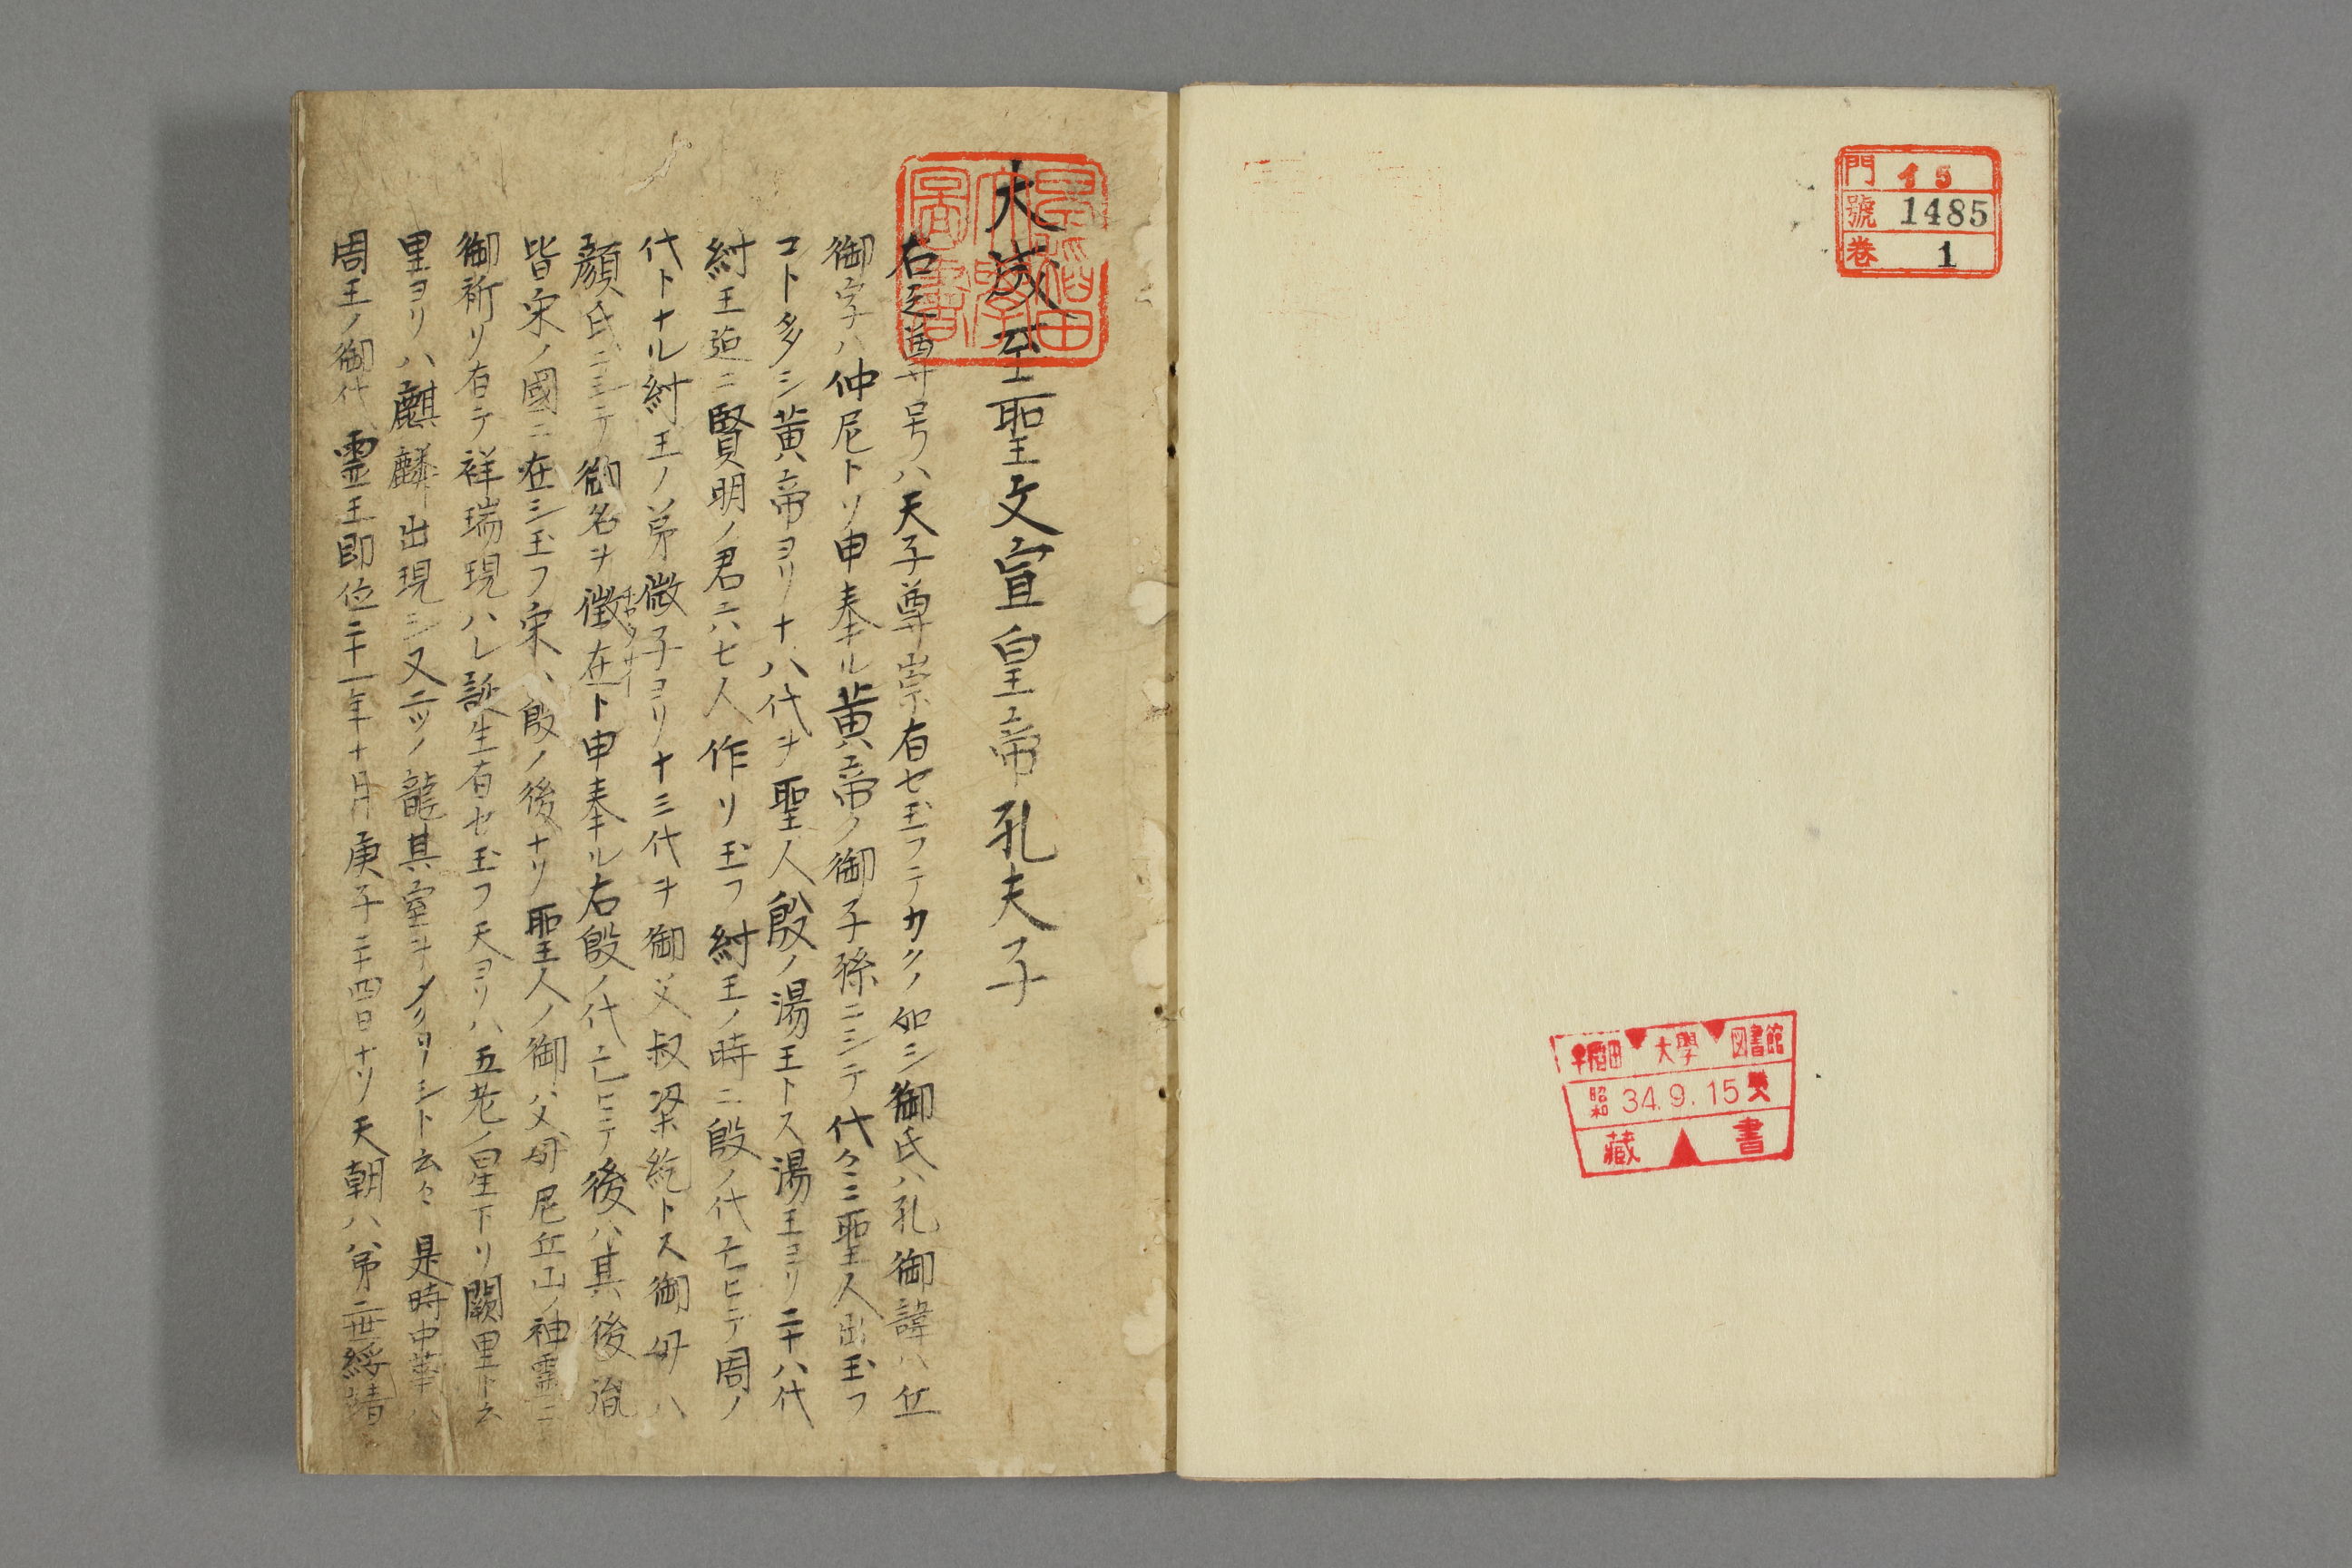 門 15
號 1485
巻 1
早稲田大學図書館
昭和 34.9.15
藏書
早稲田大學圖書
大成至聖文宣皇帝孔夫子
右之尊号ハ天子尊崇有セ玉フテカクノ如シ御氏ハ孔御諱ハ丘
御字ハ仲尼トソ申奉ル黄帝ノ御子孫ニシテ代々ニ聖人出玉フ
コト多シ黄帝ヨリ十八代ヲ聖人殷ノ湯王トス湯王ヨリ二十八代
紂王迠ニ賢明ノ君六七人作リ玉フ紂王ノ時ニ殷ノ代亡ヒテ周ノ
代トナル紂王ノ弟微子ヨリ十三代ヲ御父叔梁紇トス御母ハ
顔氏ニシテ御名ヲ徴在ト申奉ル右殷ノ代亡ヒテ後ハ其後胤
皆宋ノ國ニ在シ玉フ宋ハ殷ノ後ナリ聖人ノ御父母尼丘山ノ神霊ニ
御祈リ有テ祥瑞現ハレ誕生有セ玉フ天ヨリハ五老ノ星下リ闕里ト云
里ヨリハ麒麟出現シ又二ツノ龍其室ヲメクリシト云々是時中華ハ
周王ノ御代霊王即位二十一年十月庚子二十四日ナリ天朝ハ第二世綏靖